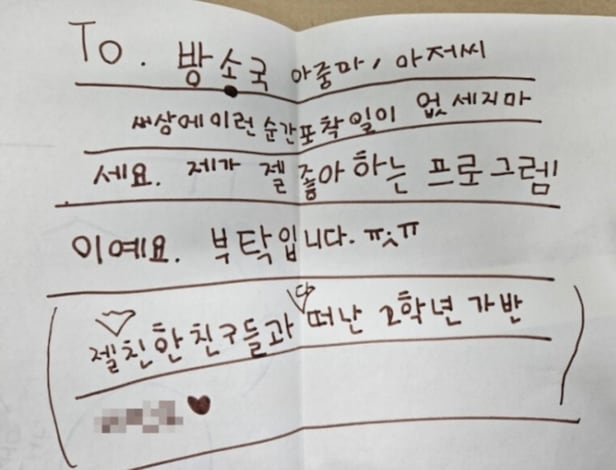 To. 방소국 아줌마, 아저씨
세상에이런 순간포착일이 없세지마
세요. 제가 젤 좋아하는 프로그렘
이예요. 부탁입니다. ㅠㅅㅠ
젤친한친구들과 떠난 2학년 가반